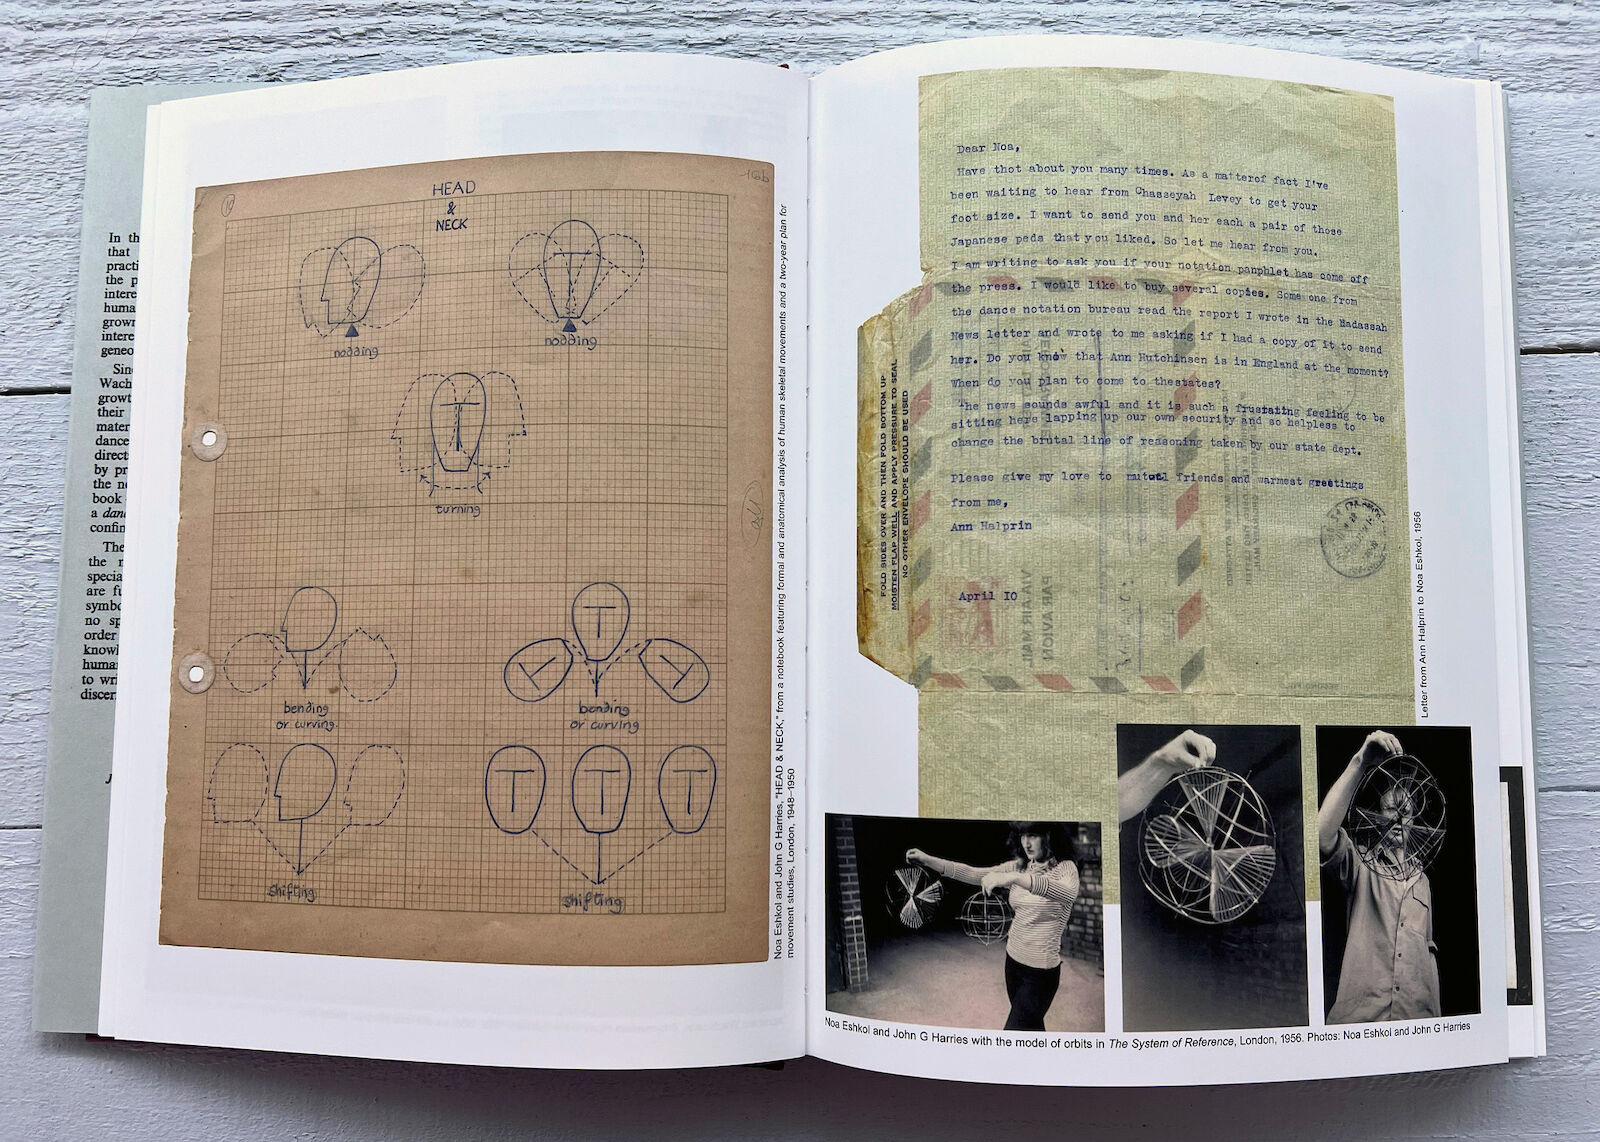 In th
that
practi
the p
interes
human
grown
interes
geneo
Sinc
Wach
growt
their
mater
dance
direct
by pr
the no
book
a danc
confin
The
the n
specia
are fu
symbo
no sp
order
knowl
human
to wri
discer
J
HEAD
&
NECK
nodding
nodding
turning
bending
or curving.
bending
or curving
shifting
shifting
Noa Eshkol and John G Harries, "HEAD & NECK," from a notebook featuring formal and anatomical analysis of human skeletal movements and a two-year plan for
movement studies, London, 1948–1950
Dear Noa,
Have thot about you many times. As a matterof fact I've
been waiting to hear from Chasseyah Levey to get your
foot size. I want to send you and her each a pair of those
Japanese peds that you liked. So let me hear from you.
I am writing to ask you if your notation panphlet has come off
the press. I would like to buy several copies. Some one from
the dance notation bureau read the report I wrote in the Hadassah
News letter and wrote to me asking if I had a copy of it to send
her. Do you know that Ann Hutchinsen is in England at the moment?
When do you plan to come to thestates?
The news sounds awful and it is such a frustating feeling to be
sitting here lapping up our own security and so helpless to
change the brutal line of reasoning taken by our state dept.
Please give my love to mutual friends and warmest greetings
from me,
Ann Halprin
April 10
FOLD SIDES OVER AND THEN FOLD BOTTOM UP
MOISTEN FLAP WELL AND APPLY PRESSURE TO SEAL
NO OTHER ENVELOPE SHOULD BE USED
VIA AIR MAIL
PAR AVION
Letter from Ann Halprin to Noa Eshkol, 1956
Noa Eshkol and John G Harries with the model of orbits in The System of Reference, London, 1956. Photos: Noa Eshkol and John G Harries